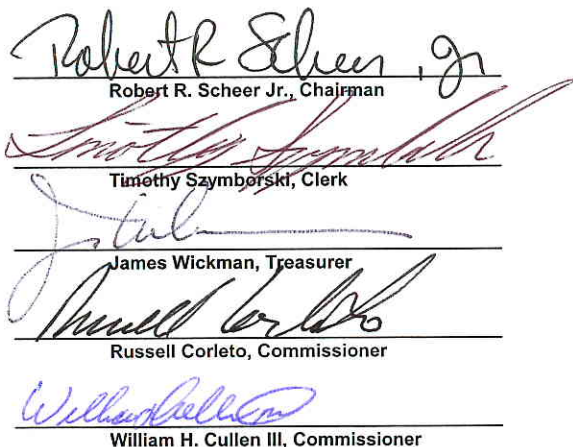 Robert R Scheer, Jr
Robert R. Scheer Jr., Chairman
Timothy
Timothy Szymborski, Clerk
James Wickman, Treasurer
Russell Corleto
Russell Corleto, Commissioner
William
William H. Cullen III, Commissioner